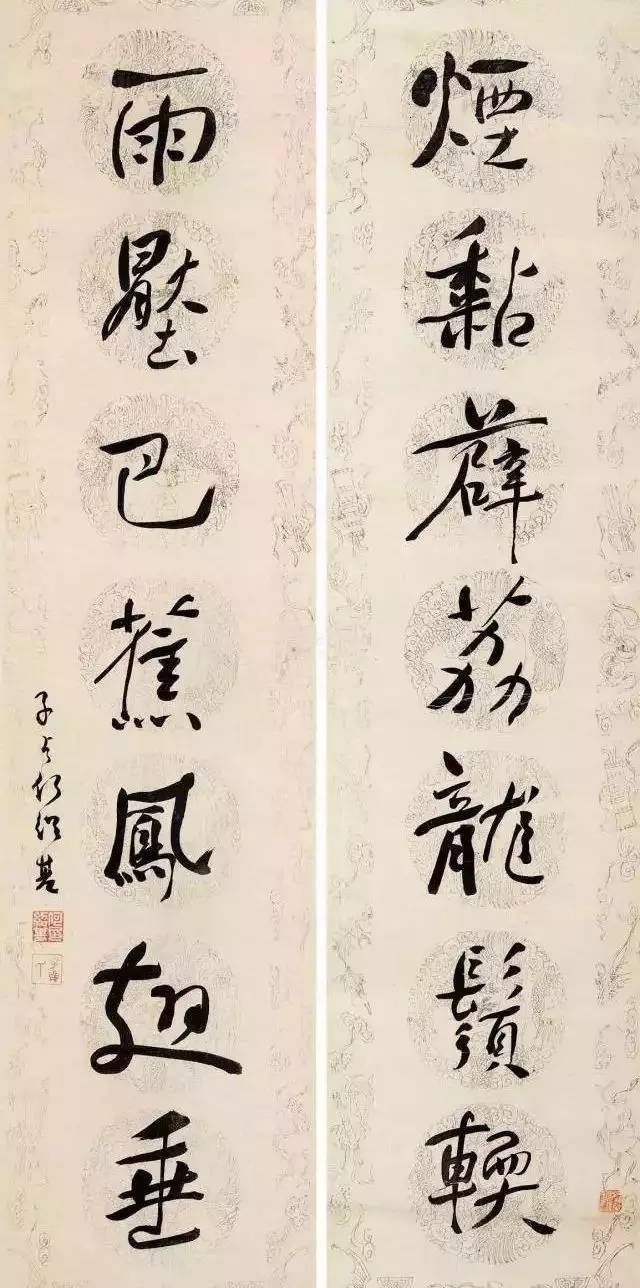 煙黏薜荔龍鬚輭
雨壓巴蕉鳳翅垂
子貞何紹基